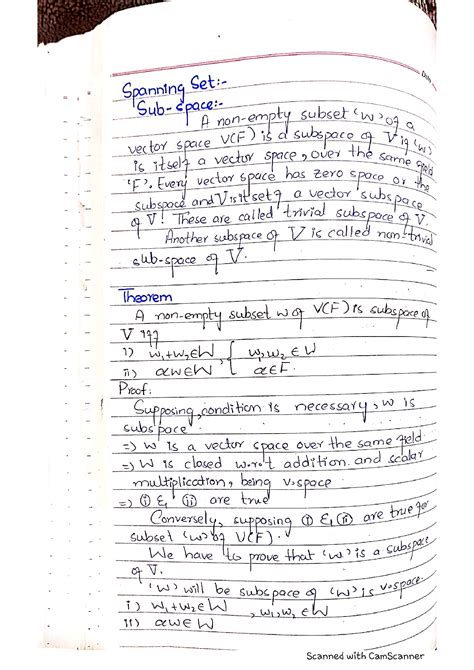 Date
Spanning Set:-
Sub-space:-
A non-empty subset 'W' of a
vector space V(F) is a subspace of V if 'W'
is itself a vector space, over the same field
'F'. Every vector space has zero space or the
subspace and V is itself a vector subspace
of V! These are called trivial subspace of V.
Another subspace of V is called non-trivial
sub-space of V.
Theorem
A non-empty subset W of V(F) is subspace of
V iff
i) w₁+w₂∈W , { w₁,w₂ ∈ W
ii) αw∈W { α∈F.
Proof:
Supposing, condition is necessary, W is
subspace
=) W is a vector space over the same field
=) W is closed w.r.t addition and scalar
multiplication, being v.space
=) (i) & (ii) are true
Conversely, supposing (i) & (ii) are true for
subset 'W' of V(F).
We have to prove that 'W' is a subspace
of V.
'W' will be subspace of 'W' is v.space.
i) w₁+w₂∈W , w₁,w₂∈W
ii) αw∈W
Scanned with CamScanner